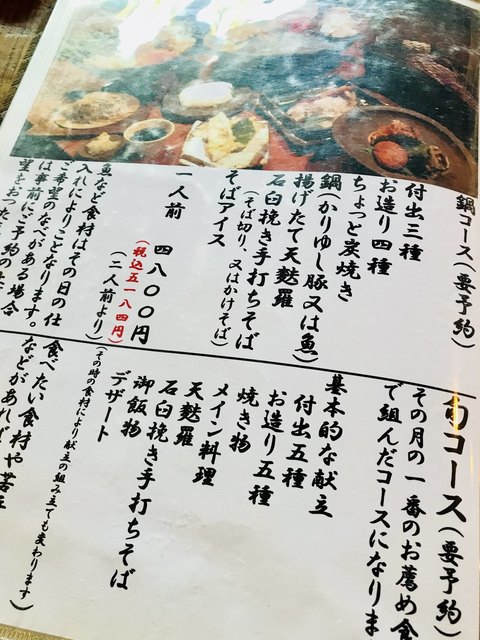 鍋コース(要予約)
付出三種
お造り四種
ちょっと炭焼き
鍋(かりゆし豚又は魚)
揚げたて天麩羅
石臼挽き手打ちそば
(そば切り、又はかけそば)
そばアイス
一人前 四八〇〇円
(税込五一八四円)
(二人前より)
魚など食材はその日の仕
入れによりことなります。
ご希望のなべがある場合
は事前にご予約の
望をおつた
旬コース(要予約)
その月の一番のお薦め食
で組んだコースになりま
基本的な献立
付出五種
お造り五種
焼き物
メイン料理
天麩羅
石臼挽き手打ちそば
御飯物
デザート
(その時の食材により献立の組み立ても変わります)
食べたい食材や苦
などがあれば